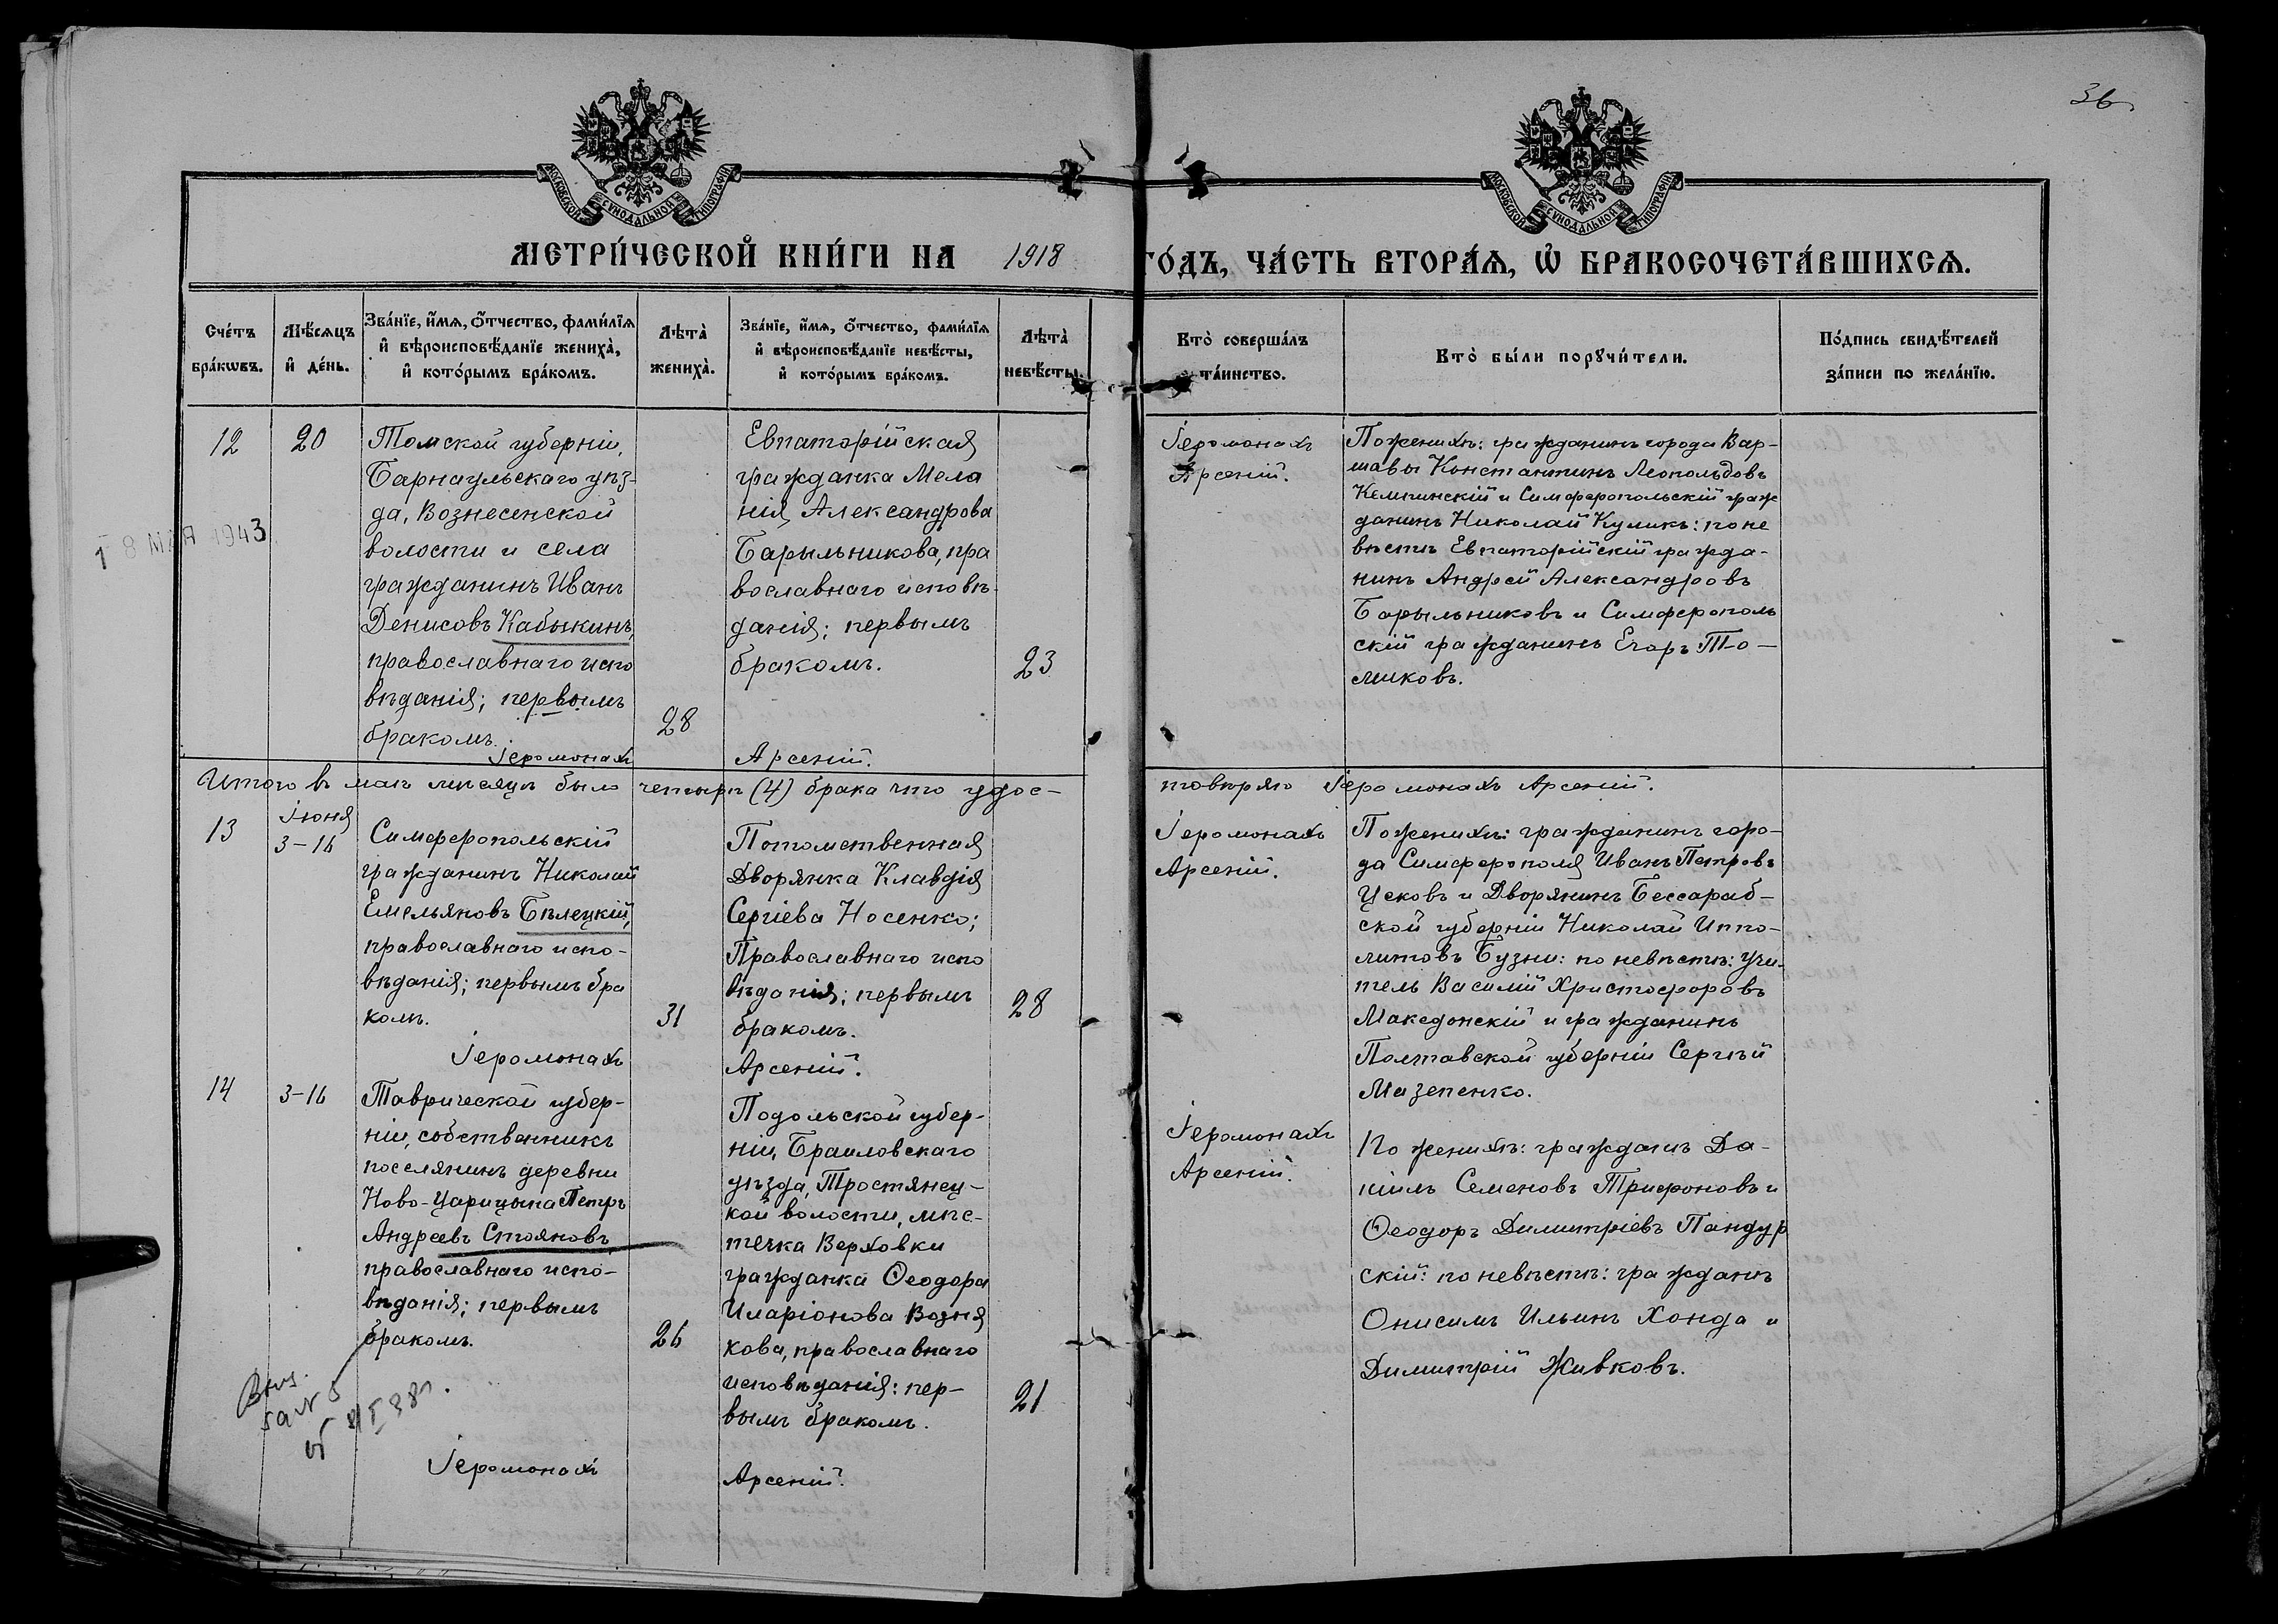 36
МОСКОВСКОЙ СѴНОДАЛЬНОЙ ТИПОГРАФІИ
МОСКОВСКОЙ СѴНОДАЛЬНОЙ ТИПОГРАФІИ
МЕТРИ́ЧЕСКОЙ КНИ́ГИ НА 1918 ГО́ДЪ, ЧА́СТЬ ВТОРА́Ѧ, Ѡ҆ БРАКОСОЧЕТА́ВШИХСѦ.
Сче́тъ
бра́кѡвъ.
Мѣ́сѧцъ
и҆ де́нь.
Зва́нїе, и҆́мѧ, ѻ҆́тчество, фами́лїѧ
и҆ вѣроисповѣ́данїе жениха̀,
и҆ кото́рымъ бра́комъ.
Лѣта̀
жениха̀.
Зва́нїе, и҆́мѧ, ѻ҆́тчество, фами́лїѧ
и҆ вѣроисповѣ́данїе невѣ́сты,
и҆ кото́рымъ бра́комъ.
Лѣта̀
невѣ́сты.
Кто̀ соверша́лъ
та́инство.
Кто̀ бы́ли порꙋчи́тели.
По́дпись свидѣ́телей
за́писи по жела́нїю.
12
20
Томской губерніи,
Барнаульскаго уѣз-
да, Вознесенской
волости и села
гражданинъ Иванъ
Денисовъ Кабыкинъ,
православнаго испо
вѣданія; первымъ
бракомъ.
28
Евпаторійская
гражданка Мела
нія Александрова
Барыльникова, пра
вославнаго исповѣ-
данія; первымъ
бракомъ.
23
Іеромонахъ Арсеній.
Іеромонахъ
Арсеній.
По женихѣ: гражданинъ города Вар-
шавы Константинъ Леопольдовъ
Кемпинскій и Симферопольскій граж
данинъ Николай Куликъ: по не
вѣстѣ Евпаторійскій гражда-
нинъ Андрей Александровъ
Барыльниковъ и Симферополь
скій гражданинъ Егоръ То-
миковъ.
18 МАЯ 1943
Итого въ маѣ мѣсяцѣ было четыре (4) брака что удос-
товѣряю Іеромонахъ Арсеній.
13
Іюня
3-16
Симферопольскій
гражданинъ Николай
Емельяновъ Бѣлецкій,
православнаго испо-
вѣданія; первымъ бра
комъ.
31
Потомственная
Дворянка Клавдія
Сергіева Носенко;
Православнаго испо
вѣданія; первымъ
бракомъ.
28
Іеромонахъ Арсеній.
Іеромонахъ
Арсеній.
По женихѣ: гражданинъ горо-
да Симферополя Иванъ Петровъ
Цековъ и Дворянинъ Бессараб-
ской губерніи Николай Иппо-
литовъ Бузни: по невѣстѣ: учи-
тель Василій Христофоровъ
Македонскій и гражданинъ
Полтавской губерніи Сергѣй
Мазепенко.
14
3-16
Таврической губер-
ніи, собственникъ
поселянинъ деревни
Ново-Царицына Петръ
Андреевъ Стояновъ,
православнаго испо-
вѣданія; первымъ
бракомъ.
26
Подольской губер-
ніи, Браиловскаго
уѣзда, Тростянец-
кой волости, мѣс-
течка Верховки
гражданка Ѳеодора
Иларіонова Возня
кова, православнаго
исповѣданія: пер-
вымъ бракомъ.
21
Іеромонахъ Арсеній.
Іеромонахъ
Арсеній.
По женихѣ: граждане Да-
ніилъ Семеновъ Трифоновъ и
Ѳеодоръ Димитріевъ Пандур
скій: по невѣстѣ: граждане
Онисимъ Ильинъ Хонда и
Димитрій Живковъ.
за № 5